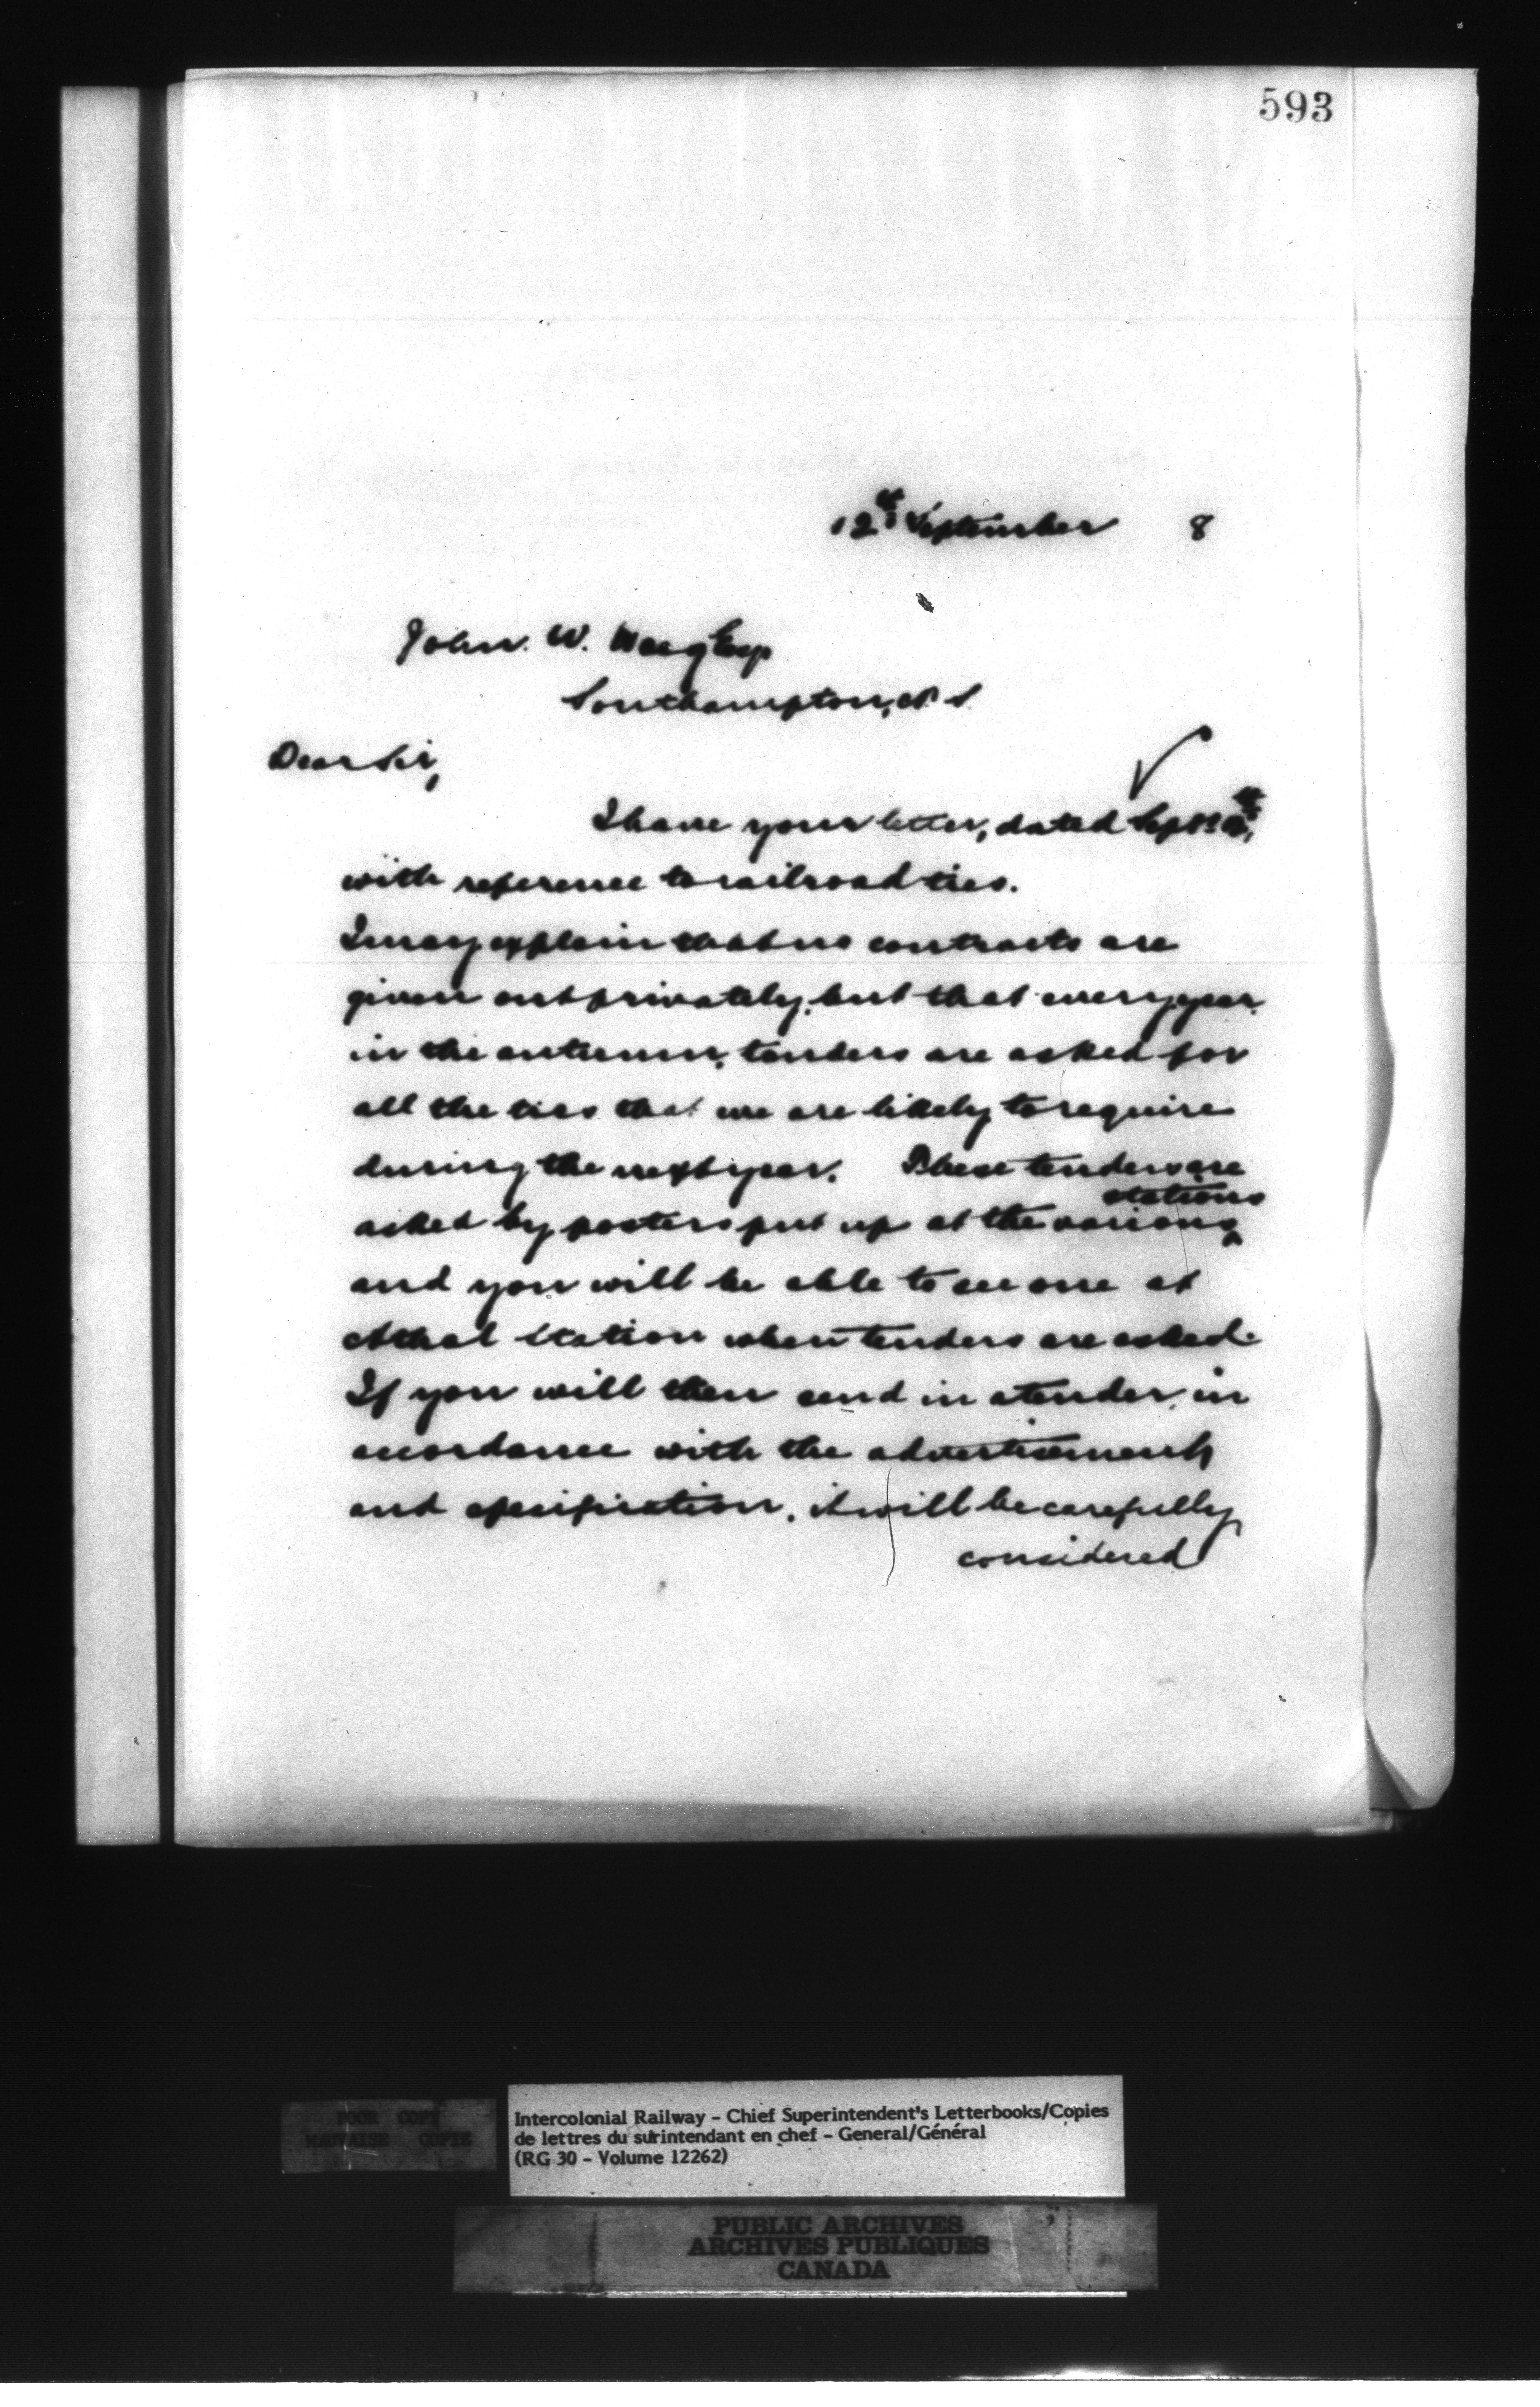 593
12th September 8
John. W. Esq
Southampton, N. S.
Dear Sir,
I have your letter, dated Sept
with reference to railroad ties.
I may explain that no contracts are
given out privately, but that every year,
in the autumn, tenders are asked for
all the ties that we are likely to require
during the next year. These tenders are
stations
asked by posters put up at the various
and you will be able to see one at
Athol Station when tenders are asked.
If you will then send in a tender, in
accordance with the advertisement
and specification, it will be carefully
considered
POOR COPY
MAUVAISE COPIE
Intercolonial Railway - Chief Superintendent's Letterbooks/Copies
de lettres du surintendant en chef - General/Général
(RG 30 - Volume 12262)
PUBLIC ARCHIVES
ARCHIVES PUBLIQUES
CANADA